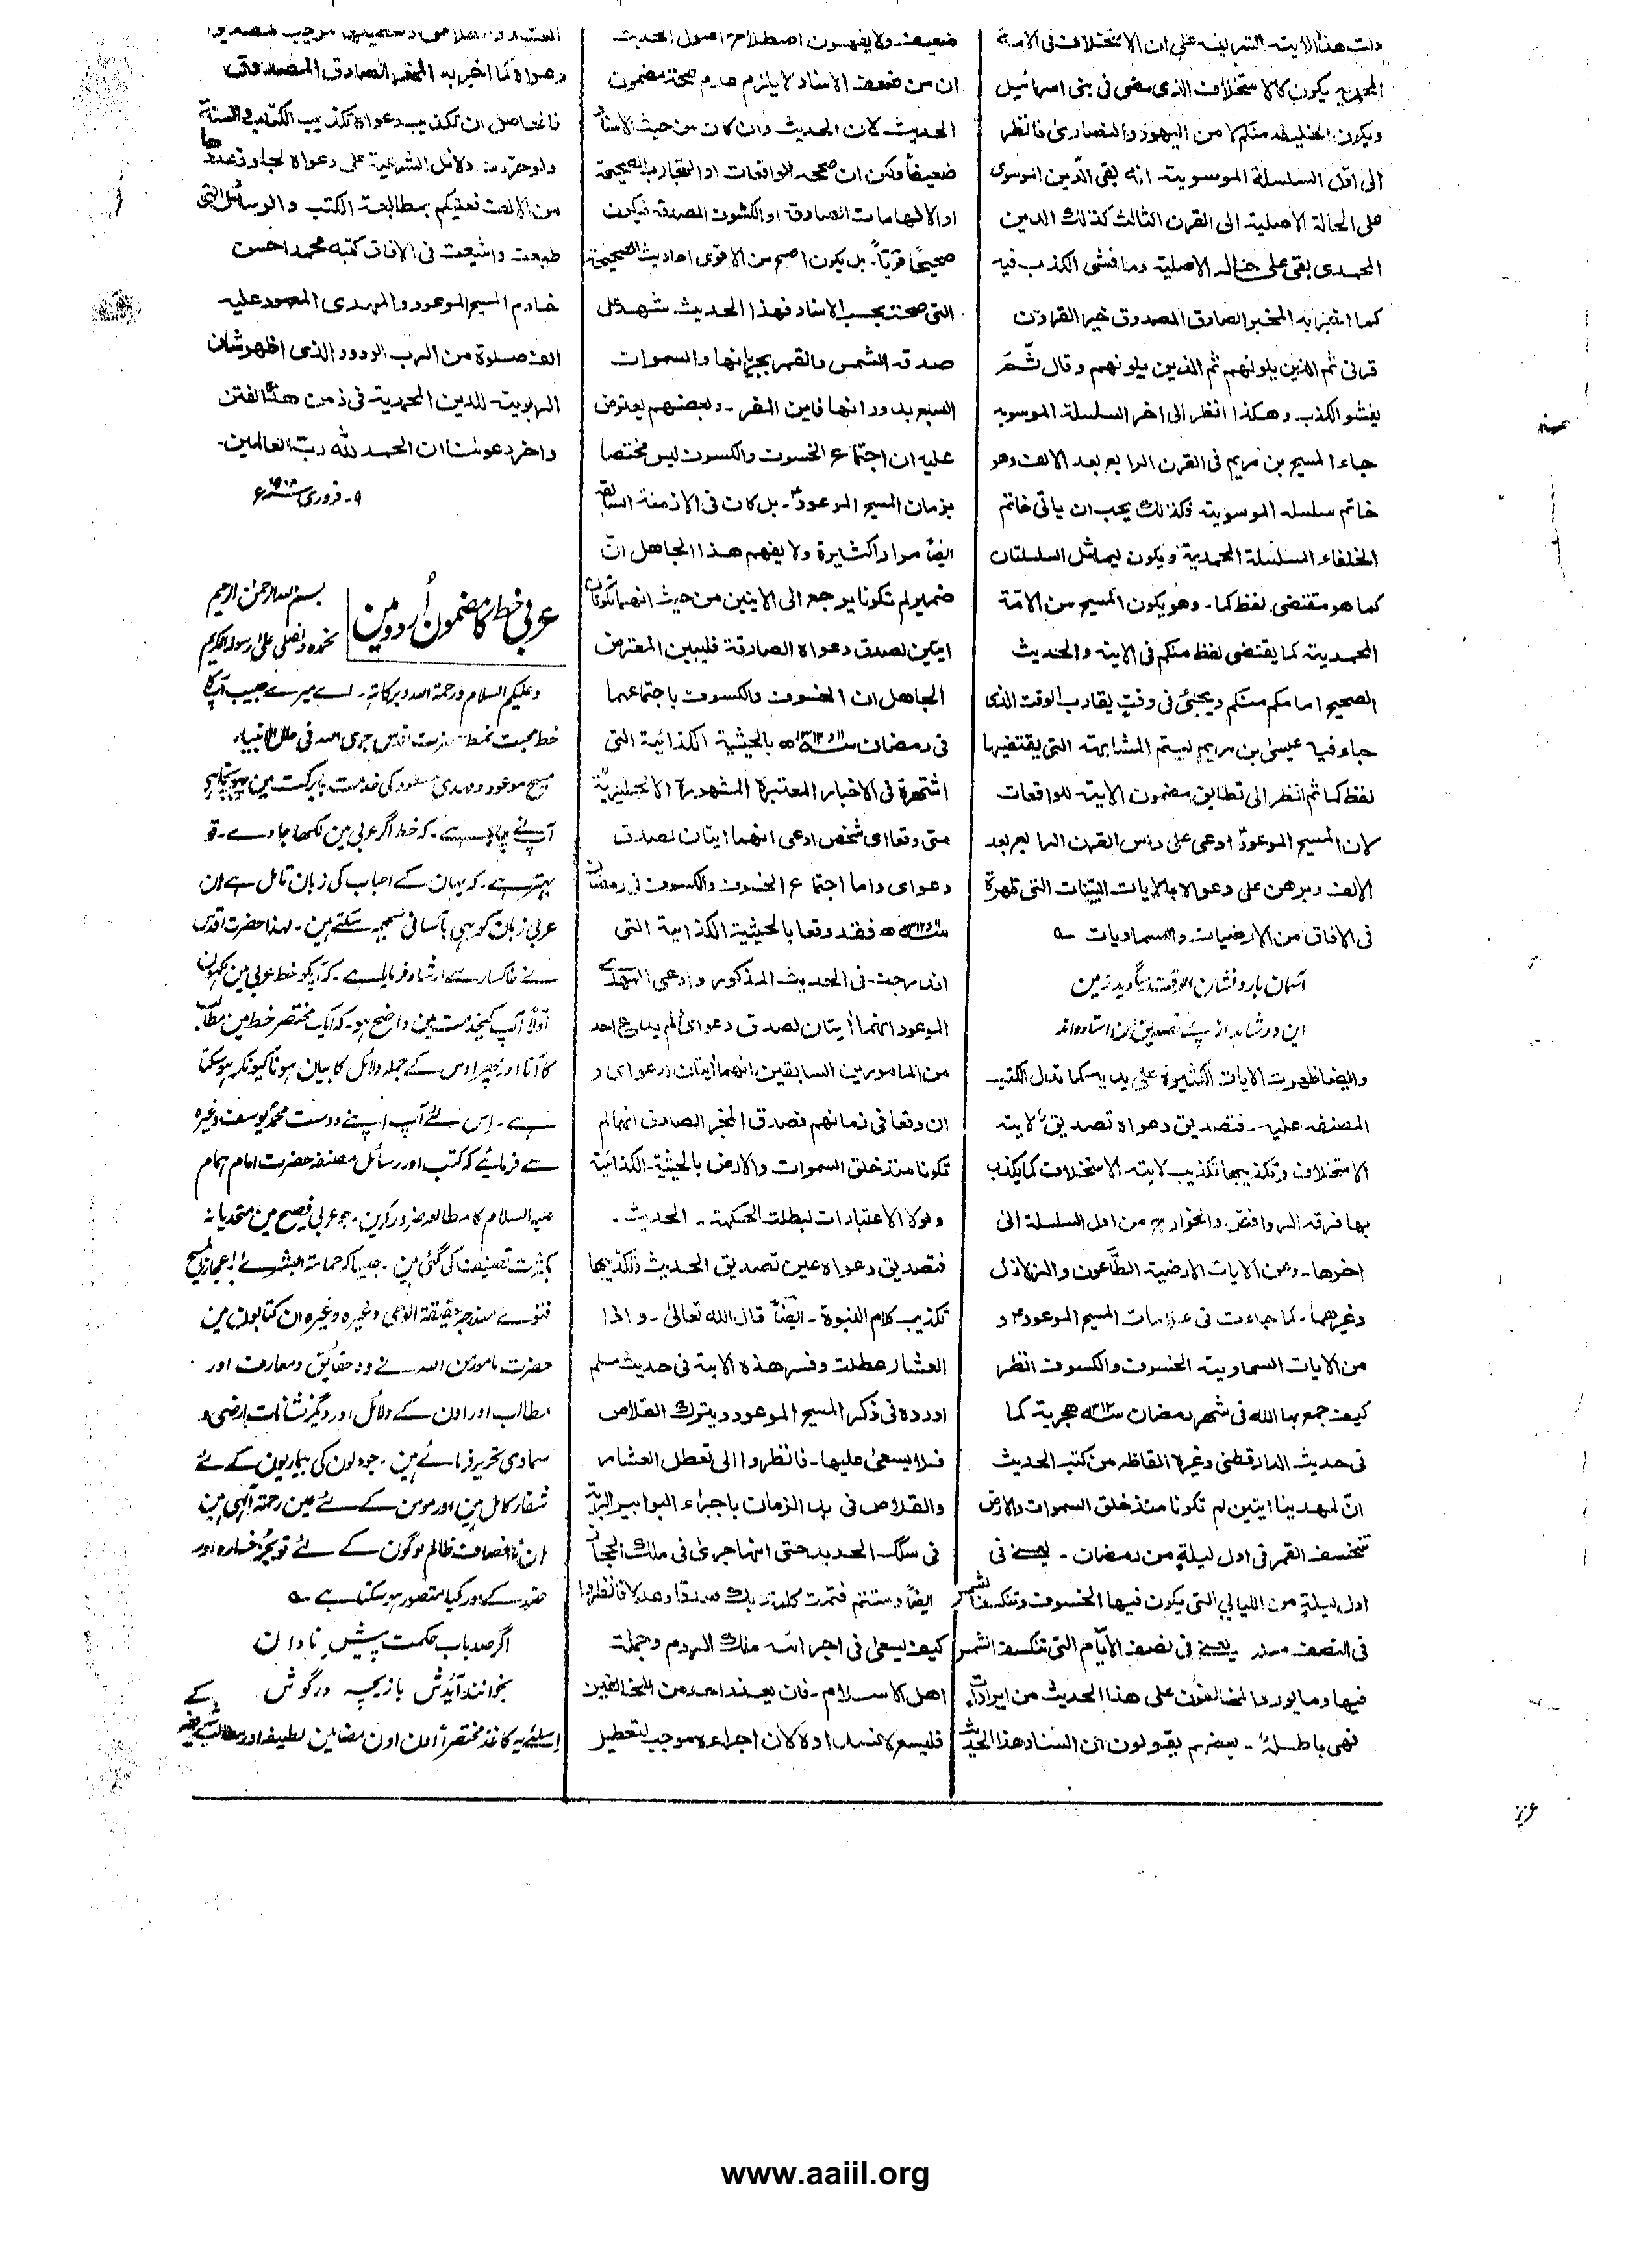 دلت هذا الاية الشريفة على ان الاستخلاف فى الامة
المحمدية يكون كالاستخلاف الذى مضى فى بنى اسرائيل
ويكون الخليفة منكم لا من اليهود والنصارى فانظر
الى اوّل السلسلة الموسوية انه بقى الدّين الموسوى
على الحالة الاصلية الى القرن الثالث كذلك الدين
المحمدى بقى على حاله الاصلية وما فشى الكذب فيه
كما اخبر به المخبر الصادق المصدوق خير القرون
قرنى ثم الذين يلونهم ثم الذين يلونهم وقال ثُمَّ
يفشو الكذب وهكذا انظر الى اخر السلسلة الموسويه
جاء المسيح بن مريم فى القرن الرابع بعد الالف وهو
خاتم سلسله الموسوية فكذالك يجب ان ياتى خاتم
الخلفاء السلسلة المحمدية ويكون ليماثل السلسلتان
كما هو مقتضى لفظ كما۔ وهو يكون المسيح من الامّة
المحمدية كما يقتضى لفظ منكم فى الاية والحديث
الصحيح امامكم منكم ويجيئ فى وقتٍ يقارب الوقت الذى
جاء فيه عيسىٰ بن مريم ليتم المشابهة التى يقتضيها
لفظ كما ثم انظر الى تطابق مضمون الاية للواقعات
لان المسيح الموعودؑ ادعى على راس القرن الرابع بعد
الالف وبرهن على دعواه بالايات البيّنات التى ظهرة
فى الافاق من الارضيات والسماديات ؎
آسمان بارد نشان الوقت میگوید زمین
این دو شاہد از پئے تصدیق من استادہ اند
وايضا ظهرت الايات الكثيرة على يديه كما تدل الكتب
المصنفه عليه۔ فتصديق دعواه تصديق لاية
الاستخلاف وتكذيبها تكذيب لاية الاستخلاف كما يكذب
بها فرقه الروافض والخوارج من اول السلسلة الى
اخرها۔ ومن الايات الارضية الطّاعون والزلازل
وغيرهما۔ كما جاءت فى علامات المسيح الموعود؏ و
من الايات السماوية الخسوف والكسوف انظر
كيف جمع بها الله فى شهر رمضان سنه ١٣١٢ هجرية كما
فى حديث الدارقطنى وغيره الفاظه من كتب الحديث
انّ لمهدينا ايتين لم تكونا منذ خلق السموات والارض
تنخسف القمر فى اول ليلةٍ من رمضان۔ یعنے فى
اول ليلةٍ من الليالي التى يكون فيها الخسوف وتنكسف الشمس
فى النصف منه یعنے فى نصف الايّام التى تنكسف الشمس
فيها وما يورد المخالفون على هذا الحديث من ايرادات
فهى باطلة۔ بعضهم يقولون ان اسناد هذا الحديث
ضعيف۔ ولا يفهمون اصطلاح اصول الحديث
ان من ضعف الاسناد لا يلزم عدم صحة مضمون
الحديث لان الحديث وان كان من حيث الاسناد
ضعيفًا ولكن ان صححه الواقعات او التجارب الصحيحة
او الالهامات الصادقة او الكشوف المصدقة فيكون
صحيحًا قويًّا۔ بل يكون اصح من الاقوى احاديث الصحيحة
التى صحت بحسب الاسناد فهذا الحديث شهد على
صدقه الشمس والقمر بجريانها والسموات
السبع بدورانها فاين المفر۔ وبعضهم يعترض
عليه ان اجتماع الخسوف والكسوف ليس مختصا
بزمان المسيح الموعودؑ۔ بل كان فى الازمنة السابقة
ايضًا مرارا كثيرة ولا يفهم هذا الجاهل انّ
ضمير لم تكونا يرجع الى الايتين من حيث انهما تكونان
ايتين لصدق دعواه الصادقة فليبين المعترض
الجاهل ان الخسوف والكسوف باجتماعهما
فى رمضان سنه ١٣١١ و ١٢ھ بالحيثية الكذائية التى
اشتهرة فى الاخبار المعتبرة المشهورة الانجليزية
متى وقعا اى شخص ادعى انهما ايتان لصدق
دعواى واما اجتماع الخسوف والكسوف فى رمضان
سنه ١٣١١ و ١٢ھ فقد وقعا بالحيثية الكذائية التى
اندرجت فى الحديث المذكور وادعى المهدى
الموعود انهما ايتان لصدق دعواى لم يدع احد
من المامورين السابقين انهما ايتان لدعواى و
ان وقعا فى زمانهم فصدق المخبر الصادق انهما لم
تكونا منذ خلق السموات والارض بالحيثية الكذائية
ولولا الاعتبارات لبطلت الحكمة۔ الحديث۔
فتصديق دعواه عين تصديق الحديث وتكذيبها
تكذيب كلام النبوة۔ ايضًا قال الله تعالىٰ۔ واذا
العشار عطلت وفسر هذه الاية فى حديث مسلم
اورده فى ذكر المسيح الموعود ويترك القلاص
فلا يسعىٰ عليها۔ فانظروا الى تعطل العشار
والقلاص فى هذه الزمان باجراء البوابير البرية
فى سكك الحديد حتى انها جرى فى ملك الحجاز
ايضًا وستتم فتمت كلمة ربك صدقا وعدلا فانظروا
كيف يسعى فى اجرائه ملك الروم وجملة
اهل الاسلام۔ فان يعند احد من المخالفين
فليسع لانسداده لان اجراءه موجب لتعطيل
دعواه كما اخبر به المخبر الصادق المصدوق
فالحاصل ان تكذيب دعواه تكذيب الكتاب والسنة
ولو حررت دلائل الشرعية على دعواه لجاوز عددها
من الالف فعليكم بمطالعة الكتب والرسائل التى
طبعت واشيعت فى الافاق كتبه محمد احسن
خادم المسيح الموعود والمهدى المعهود عليه
الف صلوة من الرب الودود الذى اظهر شان
الربوبية للدين المحمدية فى زمن هذا الفتن
واخر دعوانا ان الحمد لله ربّ العالمين۔
٩۔ فروری سنه ١٩٠٨ء
عربی خط کا مضمون اُردو میں
بسم اللہ الرحمٰن الرحیم
نحمدہ ونصلی علیٰ رسولہ الکریم
وعلیکم السلام ورحمۃ اللہ وبرکاتہ۔ اے میرے حبیب آپکا
خط محبت نمط حضرت اقدس جری اللہ فی حلل الانبیاء
مسیح موعود و مہدی مسعود کی خدمت بابرکت میں پہونچا
آپنے چاہا ہے۔ کہ خط اگر عربی مین لکھا جاوے۔ تو
بہتر ہے۔ کہ یہان کے احباب کی زبان تامل ہے ان
عربی زبان کو بہی بآسانی سمجہہ سکتے ہین۔ لہذا حضرت اقدس
نے خاکسار سے ارشاد فرمایا ہے۔ کہ آپکو خط عربی مین لکہون
اوّلاً آپ کیخدمت مین واضح ہو۔ کہ ایک مختصر خط مین مطالب
کا آنا اور پھر اوس کے جملہ دلائل کا بیان ہونا کیونکر ہو سکتا
ہے۔ اِس لئے آپ اپنے دوست محمد یوسف وغیرہ
سے فرمائیے کہ کتب اور رسائل مصنفہ حضرت امام ہمام
علیہ السلام کا مطالعہ ضرور کرین۔ جو عربی فصیح مین متحدیانہ
بکثرت تصنیف کی گئی ہین۔ جیسا کہ حمامۃ البشرےٰ اعجاز المسیح
وغیرہ وغیرہ ان کتابون مین
حضرت مامور من اللہ نے وہ حقائق ومعارف اور
مطالب اور اون کے دلائل اور دیگر نشانات ارضی و
سماوی تحریر فرمائے ہین۔ جو دلون کی بیماریون کے لئے
شفاء کامل ہین اور مومن کے لئے عین رحمۃ الٰہی ہین
ان ناانصاف ظالم لوگون کے لئے تو بجز خسارہ اور
کے اور کیا متصور ہو سکتا ہے ؎
اگر صد باب حکمت پیشِ نادان
بخوانند آیدش بازیچہ در گوش
اسلئے یہ کاغذ مختصراً اون مضامین لطیفہ اور مطالب شریفہ کے
عزیز
www.aaiil.org